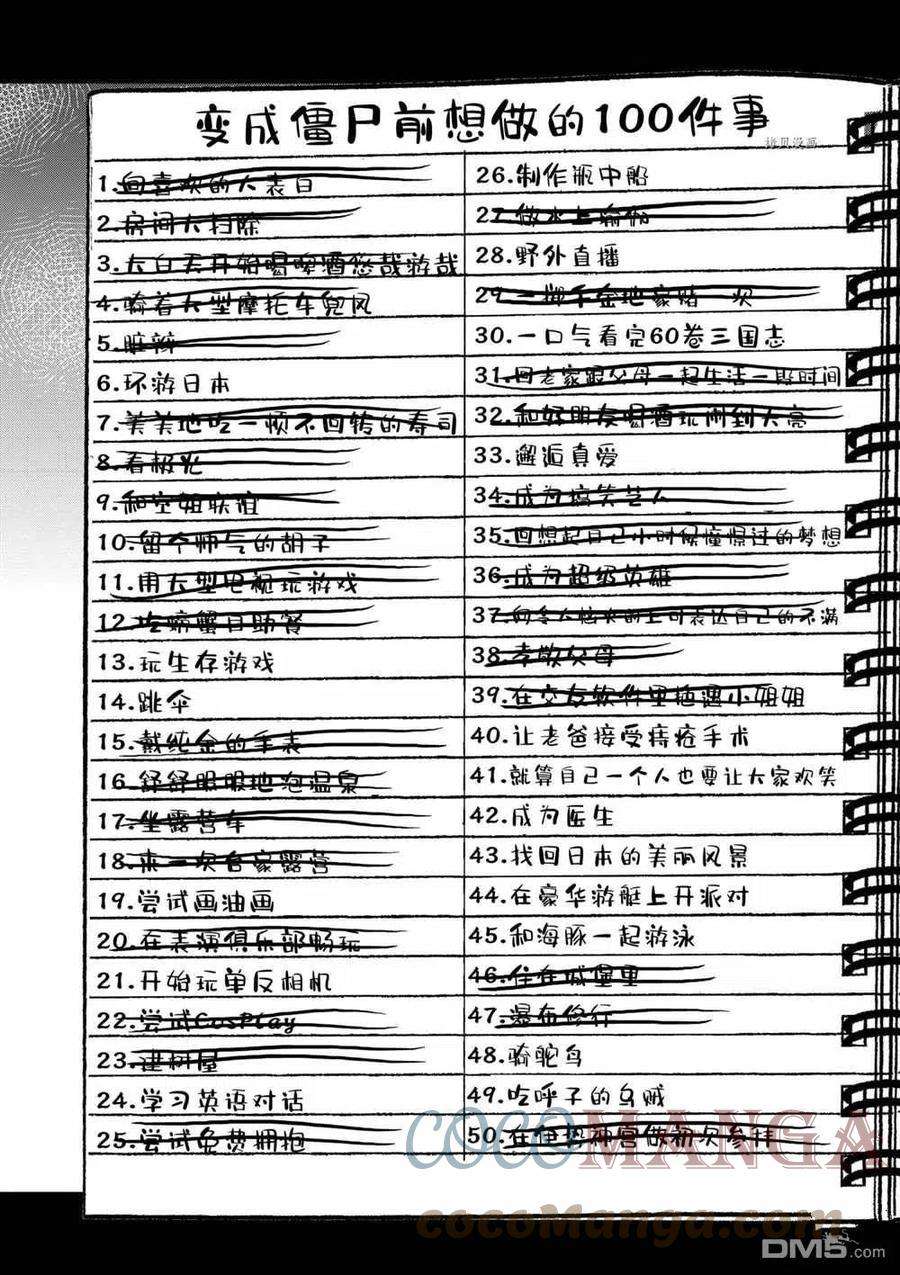 变成僵尸前想做的100件事
拷贝漫画
1.向喜欢的人表白
2.房间大扫除
3.大白天开始喝啤酒悠哉游哉
4.骑着大型摩托车兜风
5.脏辫
6.环游日本
7.美美地吃一顿不回转的寿司
8.看极光
9.和空姐联谊
10.留个帅气的胡子
11.用大型电视玩游戏
12.吃螃蟹自助餐
13.玩生存游戏
14.跳伞
15.戴纯金的手表
16.舒舒服服地泡温泉
17.坐露营车
18.来一次自家露营
19.尝试画油画
20.在表演俱乐部畅玩
21.开始玩单反相机
22.尝试CosPlay
23.建树屋
24.学习英语对话
25.尝试免费拥抱
26.制作瓶中船
27.做水上瑜伽
28.野外直播
29.一掷千金地豪赌一次
30.一口气看完60卷三国志
31.回老家跟父母一起生活一段时间
32.和好朋友喝酒玩闹到天亮
33.邂逅真爱
34.成为搞笑艺人
35.回想起自己小时候憧憬过的梦想
36.成为超级英雄
37.向令人恼火的上司表达自己的不满
38.孝敬父母
39.在交友软件里艳遇小姐姐
40.让老爸接受痔疮手术
41.就算自己一个人也要让大家欢笑
42.成为医生
43.找回日本的美丽风景
44.在豪华游艇上开派对
45.和海豚一起游泳
46.住在城堡里
47.瀑布修行
48.骑鸵鸟
49.吃呼子的乌贼
50.在伊势神宫做初次参拜
COCOMANGA
cocoManga.com
DM5.com